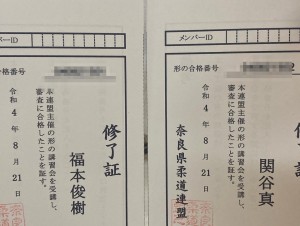 メンバーID
合格番号
令和4年8月21日
本連盟主催の形の講習会を受講し、
審査に合格したことを証す。
修了証
福本俊樹
メンバーID
形の合格番号
令和4年8月21日
本連盟主催の形の講習会を受講し、
審査に合格したことを証す。
奈良県柔道連盟
修了証
関谷真